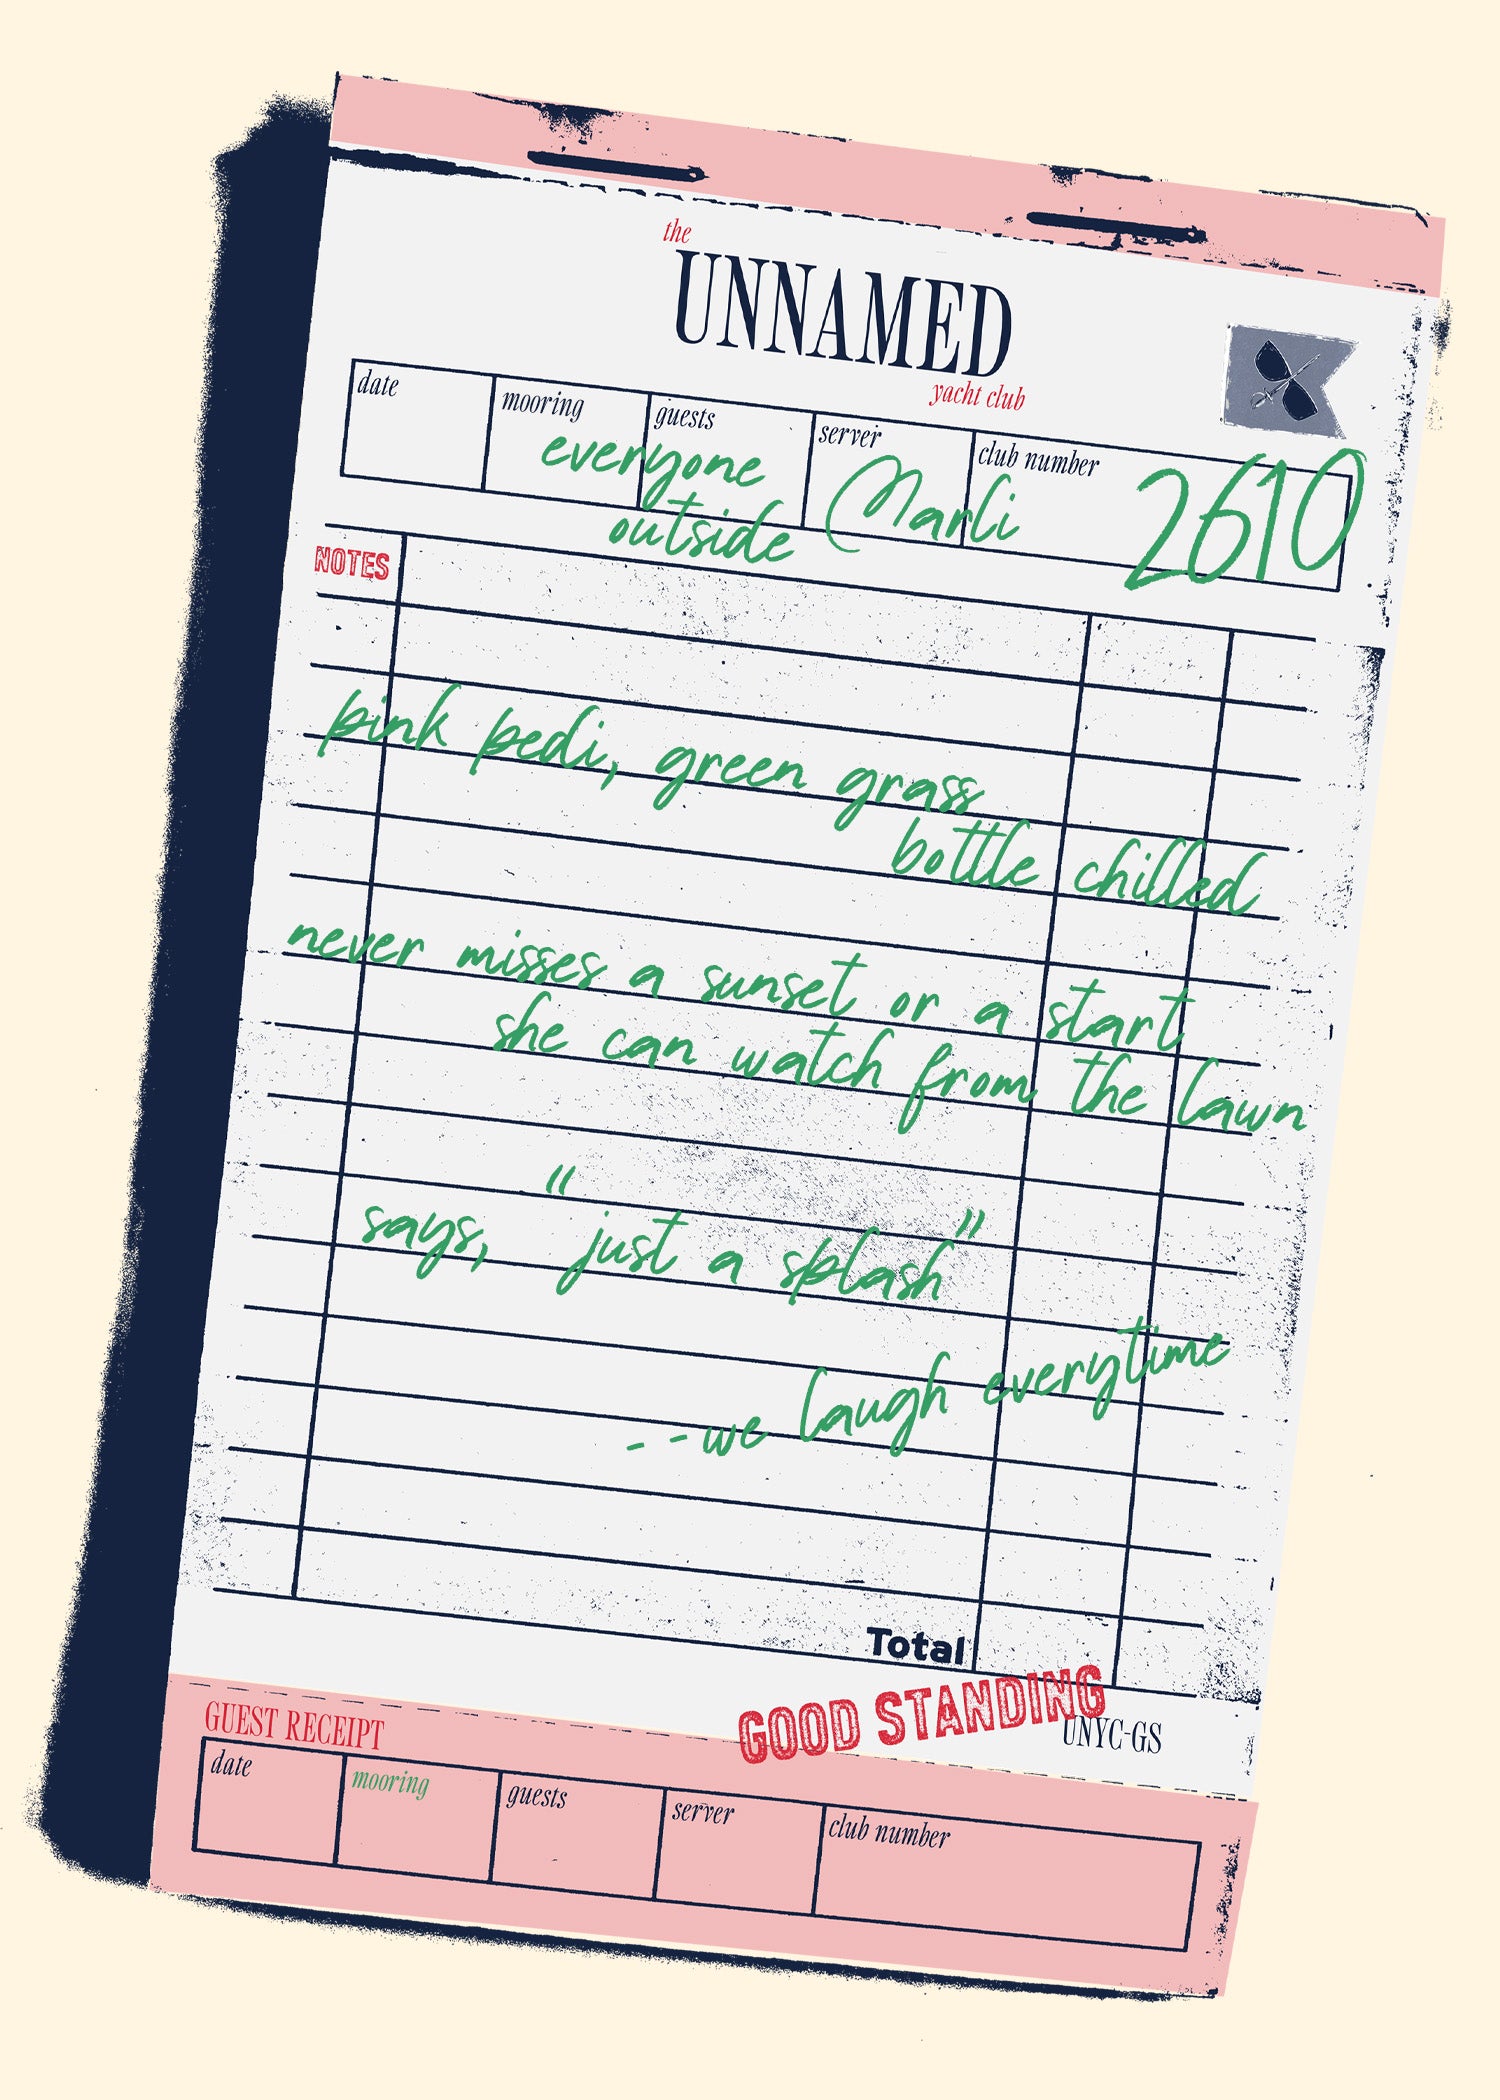 the
UNNAMED
yacht club
date mooring guests server club number
everyone
outside
Marli
2610
NOTES
pink pedi, green grass
bottle chilled
never misses a sunset or a start
she can watch from the lawn
says, "just a splash"
--we laugh everytime
Total
GOOD STANDING
UNYC-GS
GUEST RECEIPT
date mooring guests server club number